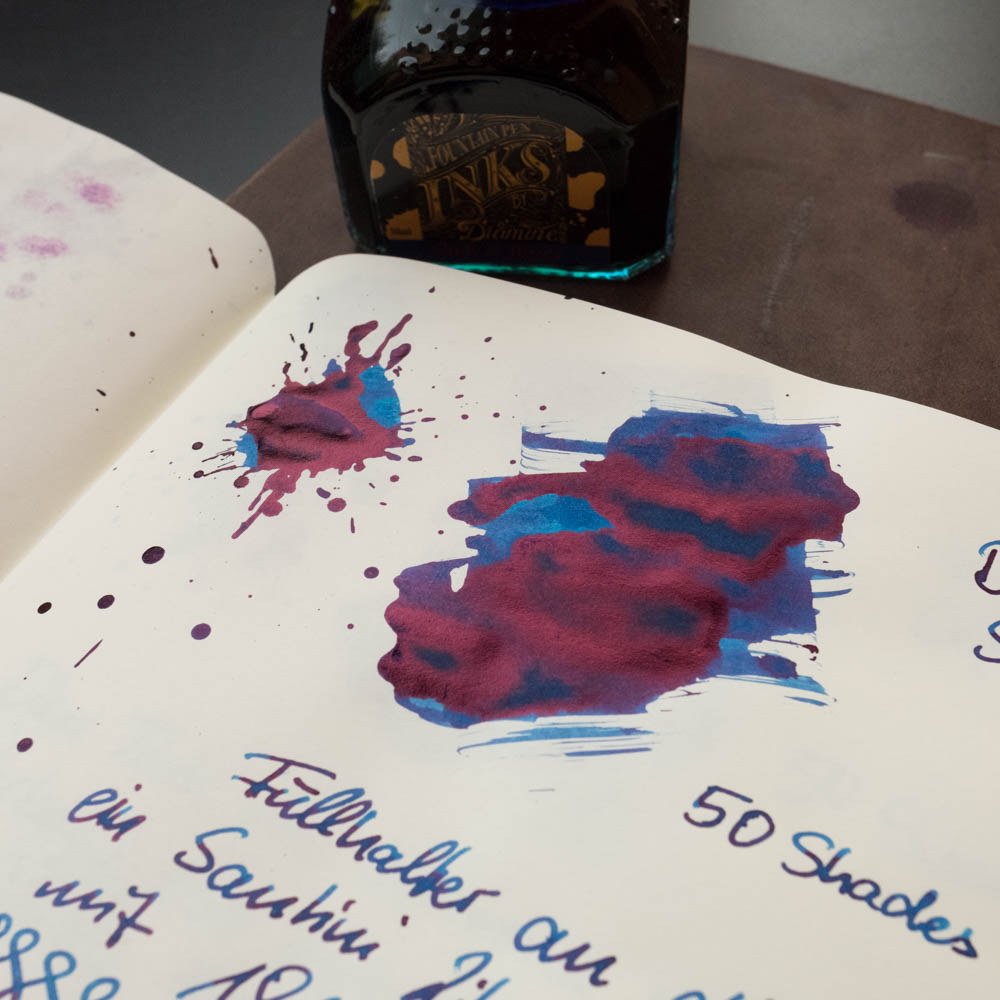 FOUNTAIN PEN
INKS
BY
Diamine
Füllhalter
ein Santini
mit
an
50 Shades